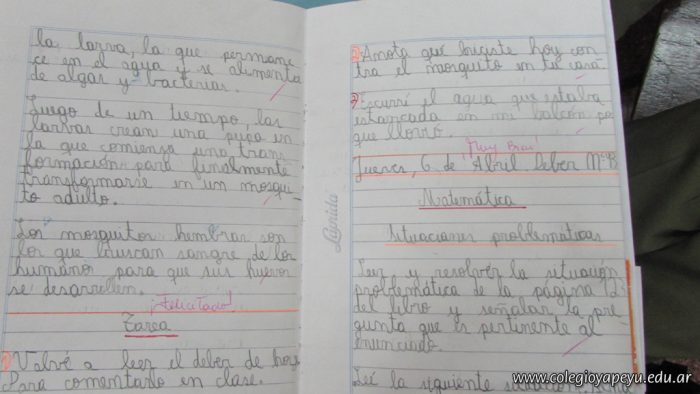 la larva, la que permane
ce en el agua y se alimenta
de algas y bacterias.
Luego de un tiempo, las
larvas crean una pupa en
la que comienza una tran
formación para finalmente
transformarse en un mosqui-
to adulto.
Los mosquitos hembras son
los que buscan sangre de los
humanos para que sus huevos
se desarrollen.
¡Felicitado!
Tarea
1 Volvé a leer el deber de hoy
Para comentarlo en clase.
1 Anota qué hiciste hoy con
tra el mosquito en tu casa.
2 Escurrí el agua que estaba
estancada en mi balcón po
que llovió.
¡Muy Bien!
Jueves, 6 de Abril Deber Nº
Matemática
Situaciones problemáticas
Leer y resolver la situación
problemática de la página 12
del libro y señalar la pre
gunta que es pertinente al
enunciado.
Leé la siguiente
Lápida
www.colegioyapeyu.edu.ar